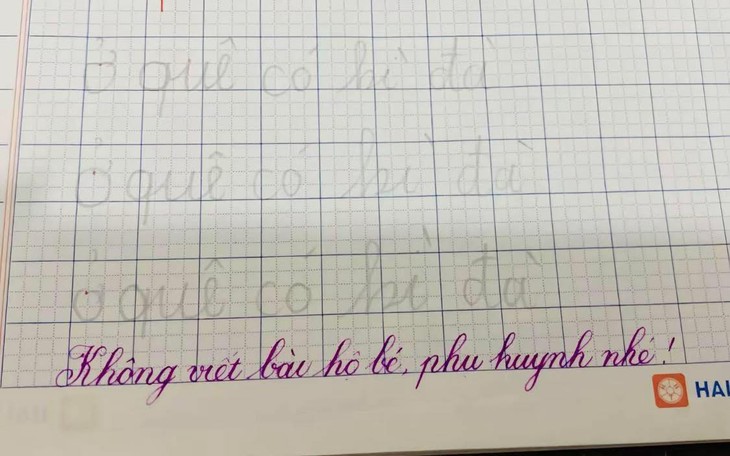 Ở quê có bì đà
Ở quê có bì đà
Ở quê có bì đà
Không viết bài hộ bé, phụ huynh nhé!
HAI